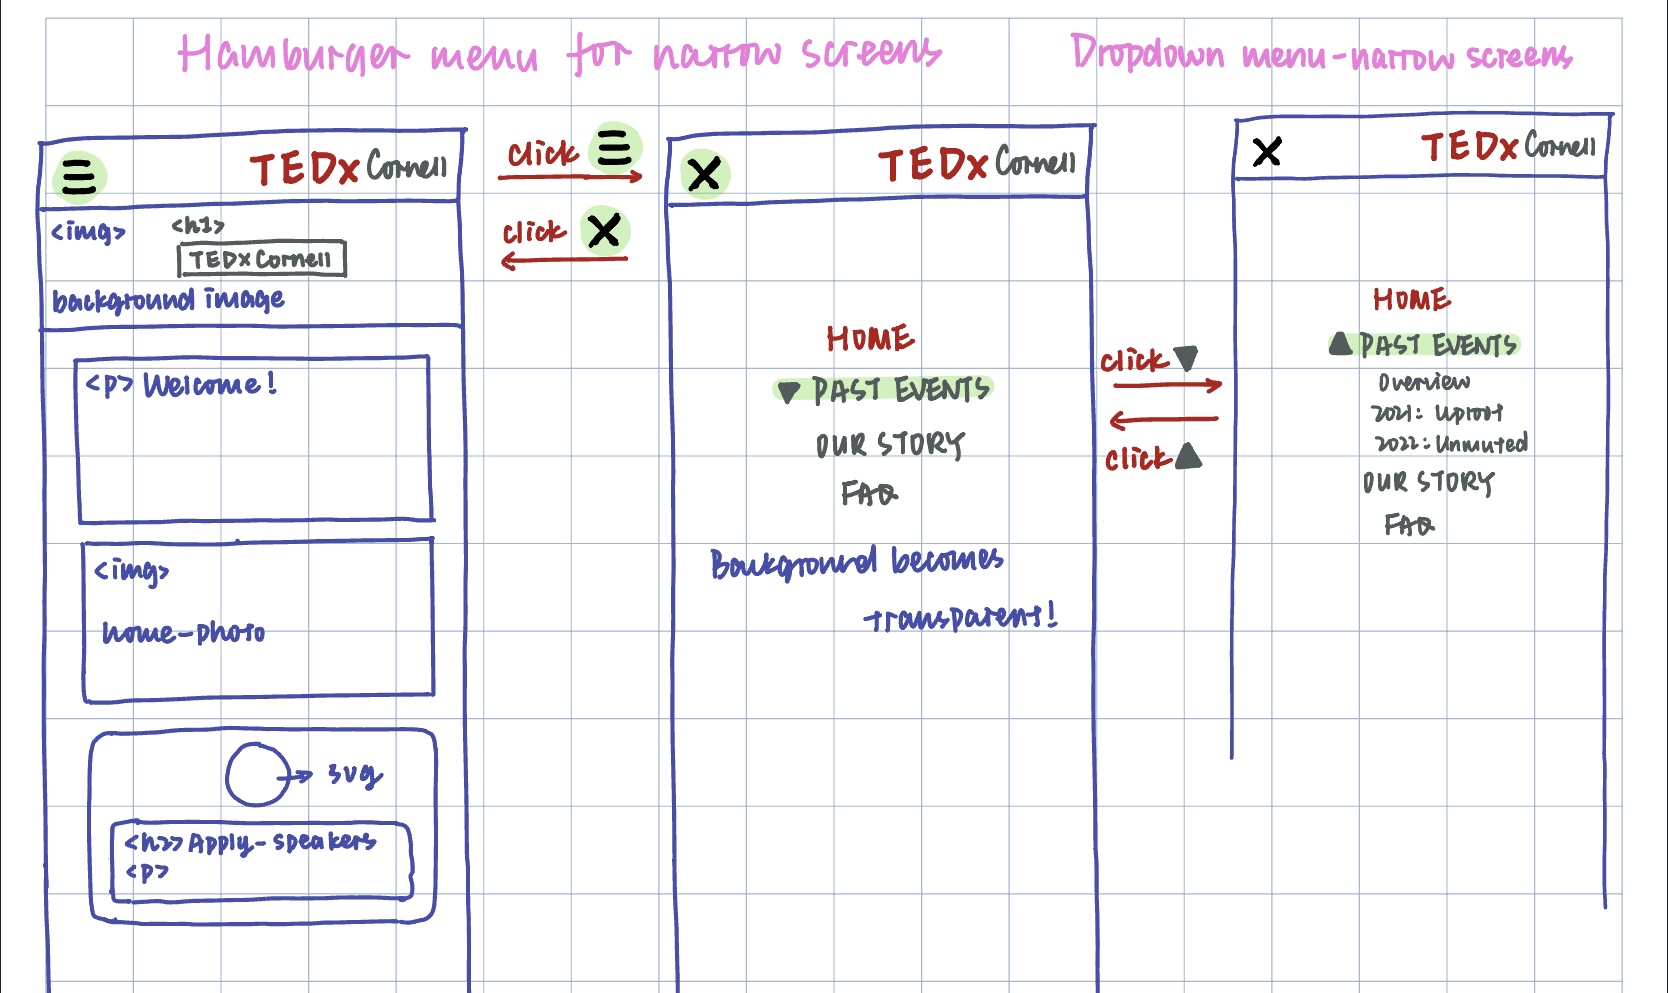 Hamburger menu for narrow screens
Dropdown menu-narrow screens
TEDx Cornell
<img>
<h1>
TEDx Cornell
background image
<p> Welcome!
<img>
home-photo
svg
<h2> Apply-speakers
<p>
click
click
TEDx Cornell
HOME
PAST EVENTS
OUR STORY
FAQ
Background becomes
transparent!
click
click
TEDx Cornell
HOME
PAST EVENTS
Overview
2021: Uproot
2022: Unmuted
OUR STORY
FAQ